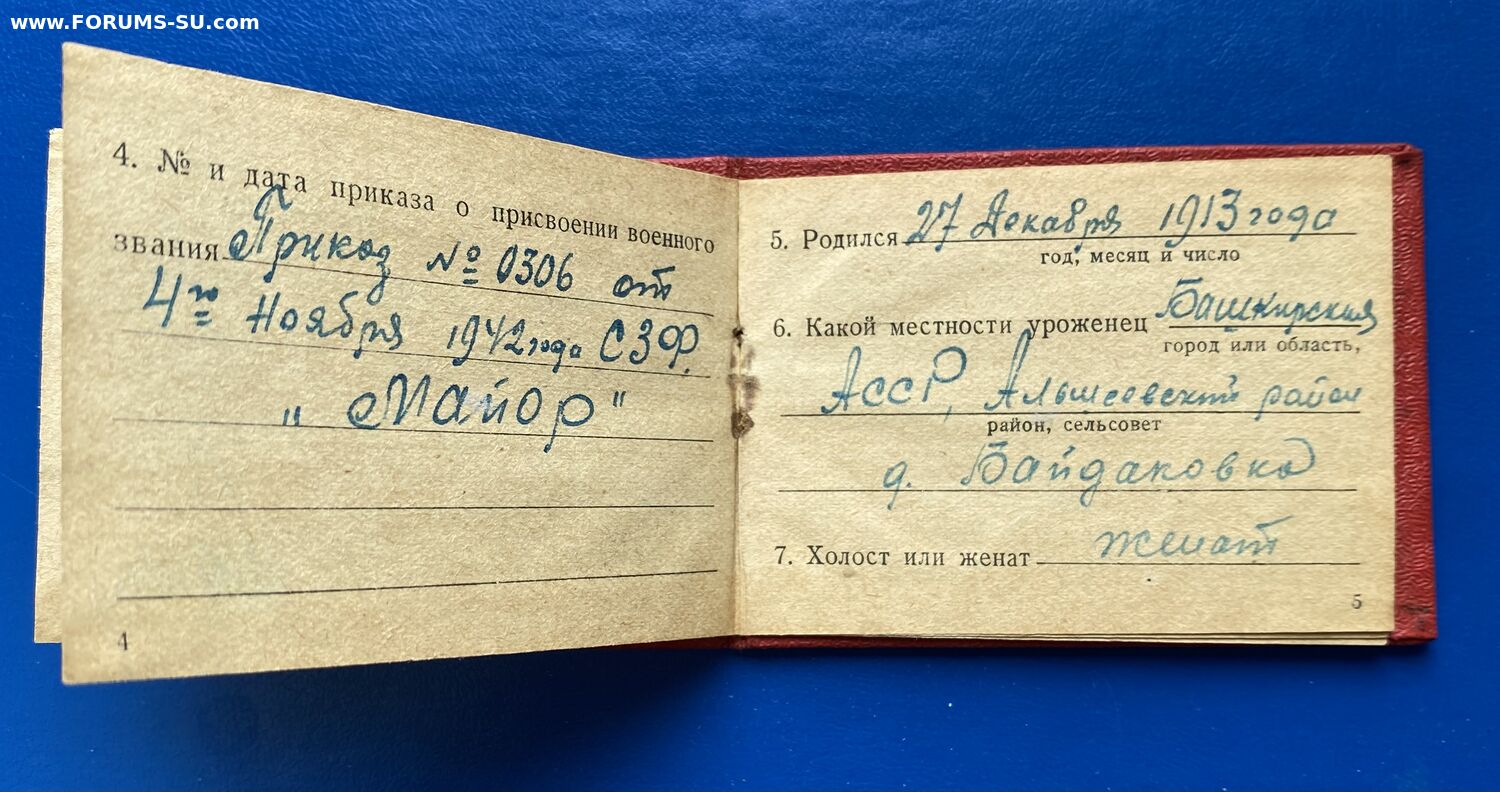 www.FORUMS-SU.com
4. № и дата приказа о присвоении военного
звания Приказ № 0306 от
4го Ноября 1942 года СЗФ.
„Майор"
4
5. Родился 27 Декабря 1913 года
год, месяц и число
6. Какой местности уроженец Башкирския
город или область,
АССР, Альшеевский район
район, сельсовет
д. Байдаковка
7. Холост или женат женат
5